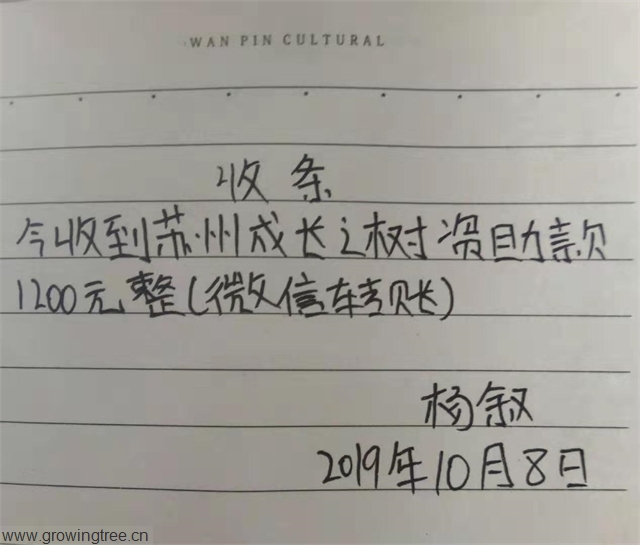 WAN PIN CULTURAL
收条
今收到苏州成长之树资助款
1200元整(微信转账)
杨叙
2019年10月8日
www.growingtree.cn